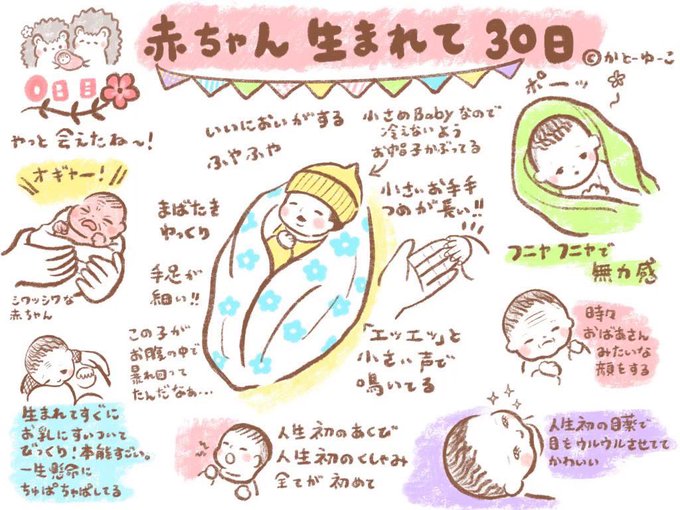 赤ちゃん 生まれて 30日
©かとーゆーこ
0日目
やっと 会えたね〜!
オギャー!
シワッシワな
赤ちゃん
いいにおいがする
ふやふや
小さめBabyなので
冷えないよう
お帽子かぶってる
ポーッ
まばたき
ゆっくり
小さいお手手
つめが長い!!
手足が
細い!!
フニャフニャで
無力感
この子が
お腹の中で
暴れ回って
たんだなぁ…
「エッエッ」と
小さい声で
鳴いてる
時々
おばあさん
みたいな
顔をする
生まれてすぐに
お乳にすいついて
びっくり!本能すごい。
一生懸命に
ちゅぱちゅぱしてる
人生初のあくび
人生初のくしゃみ
全てが初めて
人生初の目薬で
目をウルウルさせてて
かわいい